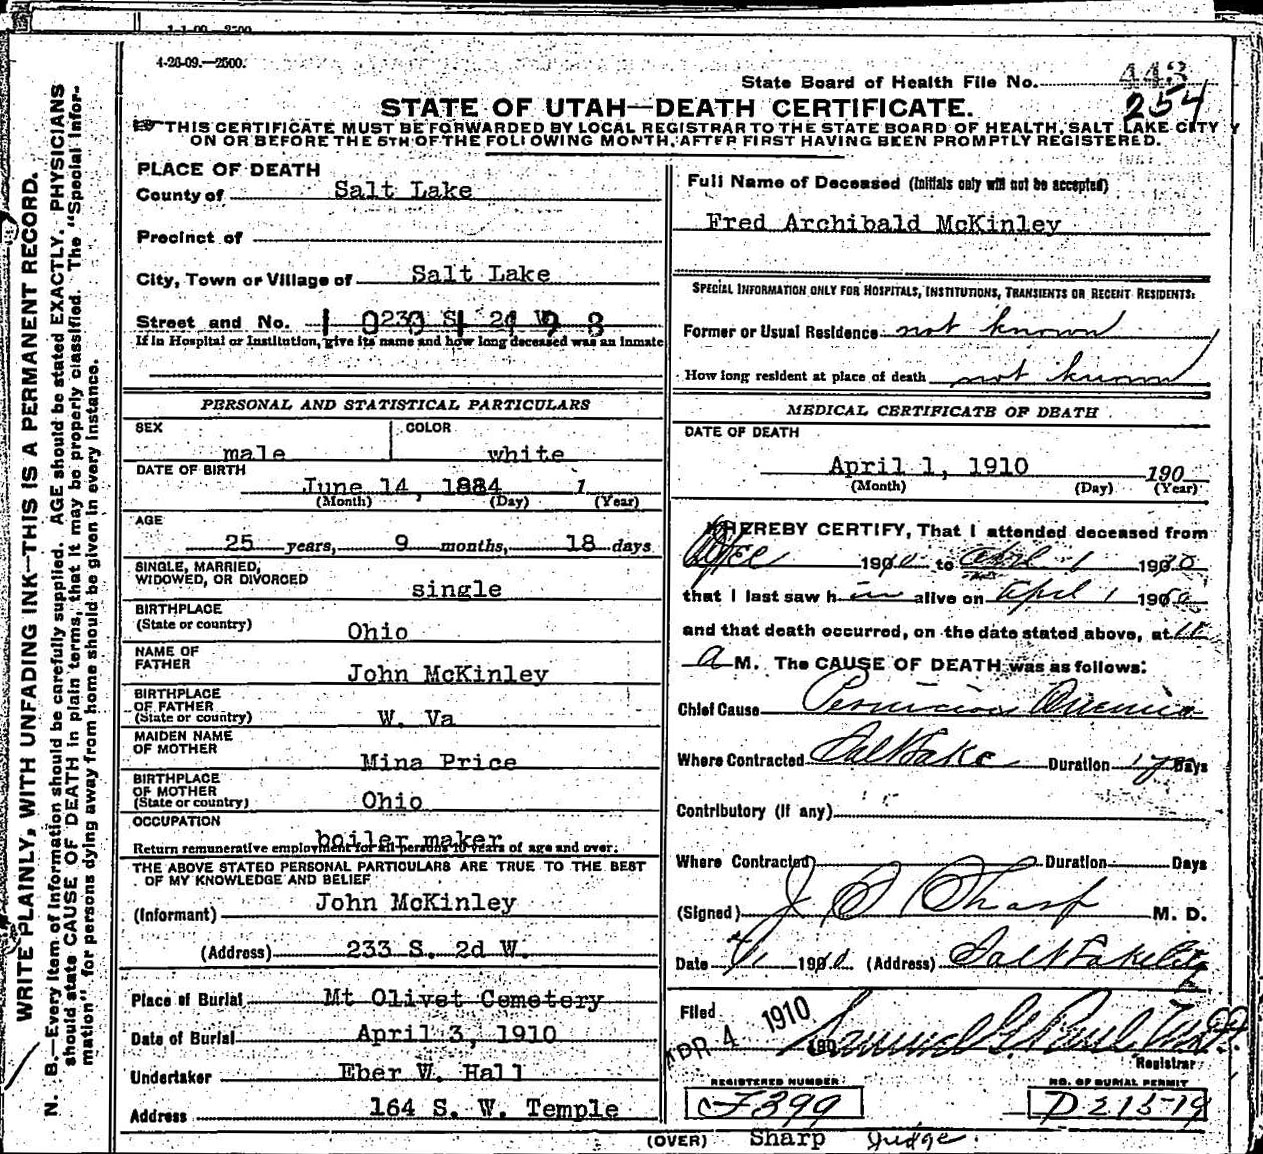 4-26-09.—2500.
State Board of Health File No. 443
254
STATE OF UTAH—DEATH CERTIFICATE.
THIS CERTIFICATE MUST BE FORWARDED BY LOCAL REGISTRAR TO THE STATE BOARD OF HEALTH, SALT LAKE CITY
ON OR BEFORE THE 5TH OF THE FOLLOWING MONTH, AFTER FIRST HAVING BEEN PROMPTLY REGISTERED.
WRITE PLAINLY, WITH UNFADING INK—THIS IS A PERMANENT RECORD.
N. B.—Every item of information should be carefully supplied. AGE should be stated EXACTLY. PHYSICIANS
should state CAUSE OF DEATH in plain terms, that it may be properly classified. The "Special Infor-
mation" for persons dying away from home should be given in every instance.
PLACE OF DEATH
County of Salt Lake
Precinct of
City, Town or Village of Salt Lake
Street and No.
If in Hospital or Institution, give its name and how long deceased was an inmate
PERSONAL AND STATISTICAL PARTICULARS
SEX male COLOR white
DATE OF BIRTH
June 14, 1884 1
(Month) (Day) (Year)
AGE
25 years, 9 months, 18 days
SINGLE, MARRIED,
WIDOWED, OR DIVORCED single
BIRTHPLACE
(State or country) Ohio
NAME OF
FATHER John McKinley
BIRTHPLACE
OF FATHER
(State or country) W. Va
MAIDEN NAME
OF MOTHER Mina Price
BIRTHPLACE
OF MOTHER
(State or country) Ohio
OCCUPATION
boiler maker
Return remunerative employment for all persons 10 years of age and over.
THE ABOVE STATED PERSONAL PARTICULARS ARE TRUE TO THE BEST
OF MY KNOWLEDGE AND BELIEF
(Informant) John McKinley
(Address) 233 S. 2d W.
Place of Burial Mt Olivet Cemetery
Date of Burial April 3, 1910
Undertaker Eber W. Hall
Address 164 S. W. Temple
Full Name of Deceased (Initials only will not be accepted)
Fred Archibald McKinley
SPECIAL INFORMATION ONLY FOR HOSPITALS, INSTITUTIONS, TRANSIENTS OR RECENT RESIDENTS:
Former or Usual Residence not known
How long resident at place of death not known
MEDICAL CERTIFICATE OF DEATH
DATE OF DEATH
April 1, 1910 190
(Month) (Day) (Year)
I HEREBY CERTIFY, That I attended deceased from
1910 to April 1 1910
that I last saw him alive on April 1 1910
and that death occurred, on the date stated above, at
a M. The CAUSE OF DEATH was as follows:
Chief Cause Pernicious Anemia
Where Contracted Salt Lake Duration Days
Contributory (if any)
Where Contracted Duration Days
(Signed) J Sharp M. D.
Date 4/1 1910 (Address) Salt Lake City
Filed APR 4 1910 190
Registrar
REGISTERED NUMBER
NO. OF BURIAL PERMIT
F399
D 215-19
(OVER) Sharp Judge